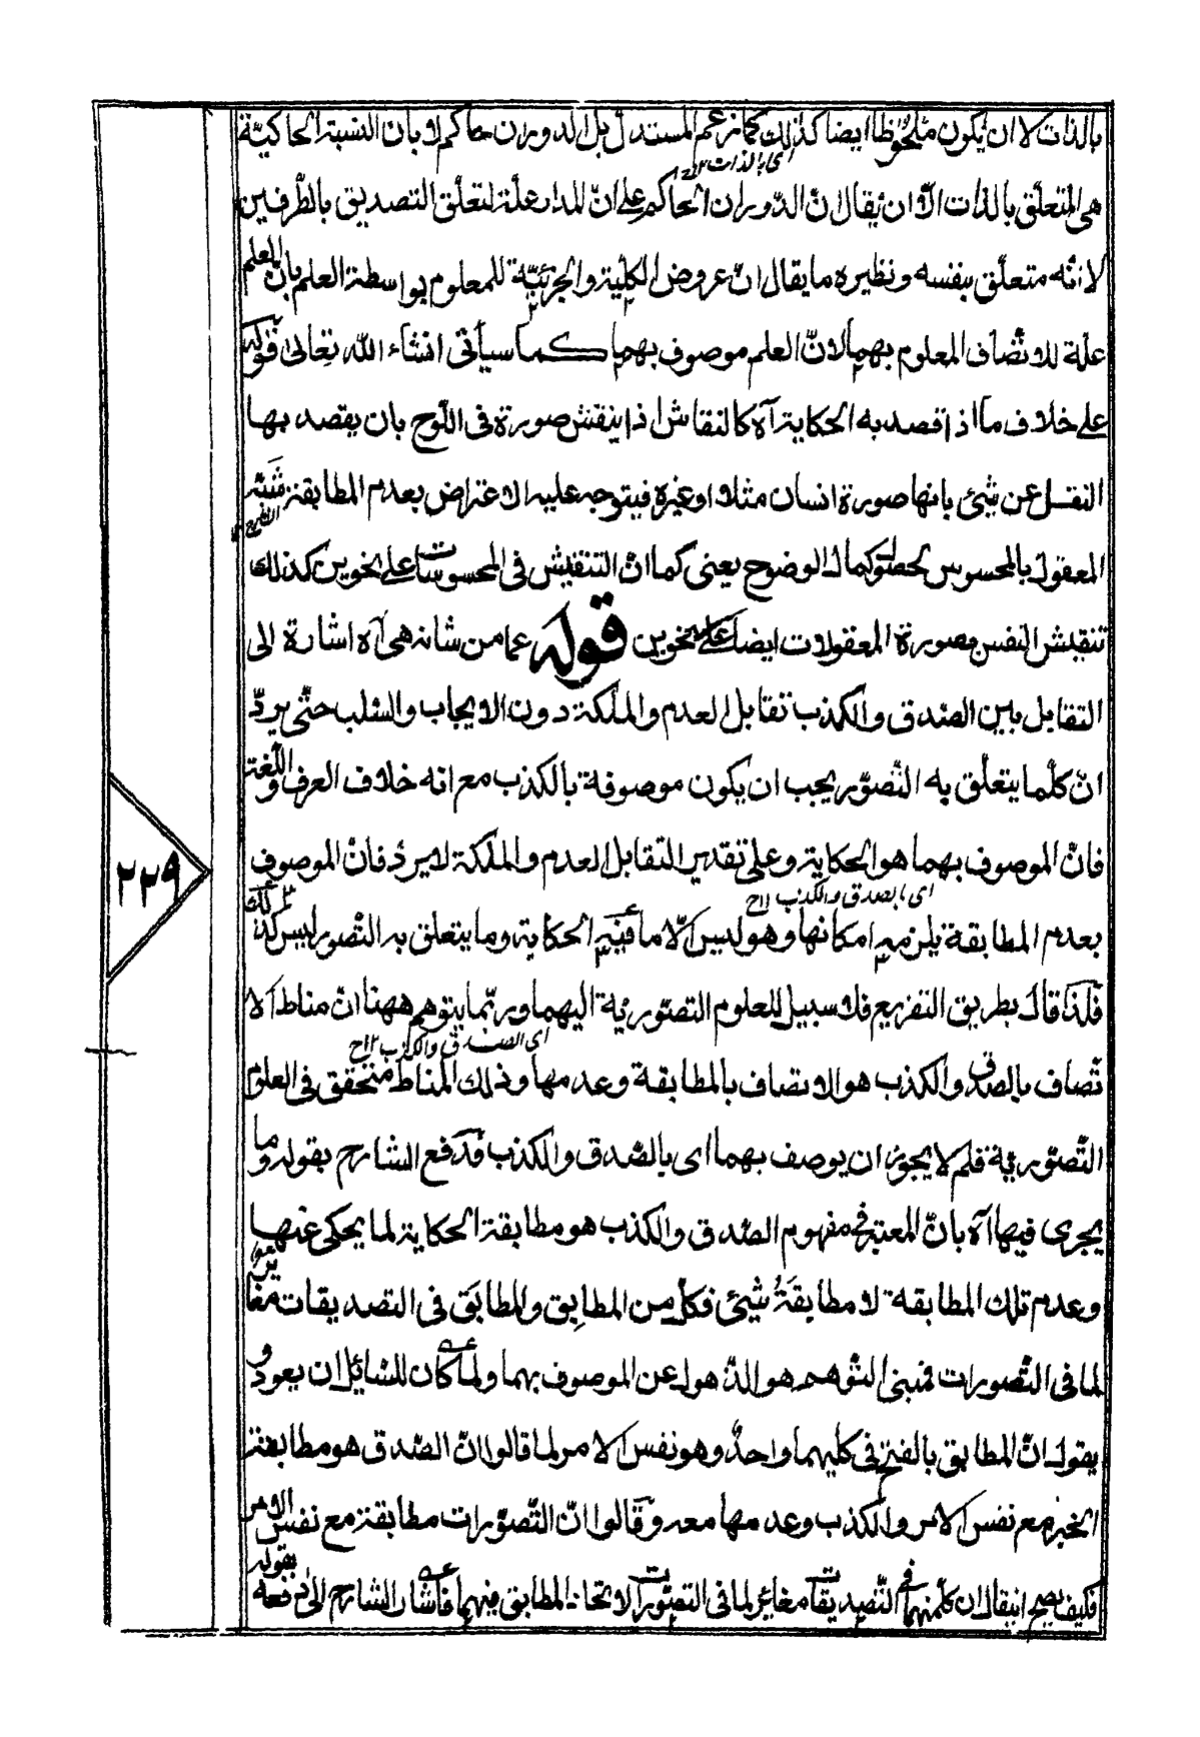 بالذات لا ان يكون ملحوظا ايضا كذلك كما زعم المستدل بل الدوران حاكم لا بان النسبة الحاكيّة
اى بالذات ١٢
هى المتعلّق بالذات الّا ان يُقال انّ الدّوران الحاكم على انّ المدار علّة لتعلّق التصديق بالطّرفين
لا انّه متعلّق بنفسه ونظيره ما يقال انّ عروض الكلّية والجزئيّة للمعلوم بواسطة العلم بان العلم
علّة للاتّصاف المعلوم بهما لانّ العلم موصوف بهما كما سيأتى انشاء الله تعالى قوله
على خلاف ما اذا قصد به الحكاية آه كالنقاش اذا ينقش صورة فى اللّوح بان يقصد بها
النقل عن شئ بانها صورة انسان مثلا او غيره فيتوجه عليه الاعتراض بعدم المطابقة شبّه
الشارح
المعقول بالمحسوس لحصول كمال الوضوح يعنى كما انّ التنقيش فى المحسوسات على نحوين كذلك
تنقيش النفس بصورة المعقولات ايضا على نحوين قوله عما من شانه هى آه اشارة الى
التقابل بين الصّدق والكذب تقابل العدم والملكة دون الايجاب والسّلب حتّى يردّ
انّ كلّما يتعلّق به التّصوّر يجب ان يكون موصوفة بالكذب مع انه خلاف العرف واللّغة
فانّ الموصوف بهما هو الحكاية وعلى تقدير التقابل العدم والملكة لا يرد فانّ الموصوف
اى بالصدق والكذب ١٢ح
بعدم المطابقة يلزمه امكانها وهو ليس الّا ما فيه الحكاية وما يتعلق به التّصور ليس كذلك
فلذا قال بطريق التفريع فلا سبيل للعلوم التصوّريّة اليهما وربّما يتوهم ههنا انّ مناط الا
اى الصدق والكذب ١٢ح
تّصاف بالصدق والكذب هو الاتصاف بالمطابقة وعدمها وذلك المناط متحقق فى العلوم
التّصوّريّة فلم لا يجوز ان يوصف بهما اى بالصّدق والكذب فدفع الشارح بقوله وما
يجرى فيها آه بانّ المعتبر فى مفهوم الصّدق والكذب هو مطابقة الحكاية لما يحكى عنها
وعدم تلك المطابقة لا مطابقةُ شئ فكلٌ من المطابِق والمطابَق فى التصديقات مغاير
لما فى التّصورات فمبنى التّوهم هو الذّهول عن الموصوف بهما ولما كان للسّائل ان يعود و
يقول انّ المطابق بالفتح فى كليهما واحدٌ وهو نفس الامر لما قالوا انّ الصّدق هو مطابقة
الخبر مع نفس الامر والكذب وعدمها معه وقالوا انّ التّصوّرات مطابقة مع نفس الامر
فكيف يصح ان يقال ان كلّ منهما فى التّصديقات مغاير لما فى التصوّرات لاتحاد المطابق فيهما فأشار الشارح الى دفعه بقوله
٢٢٩